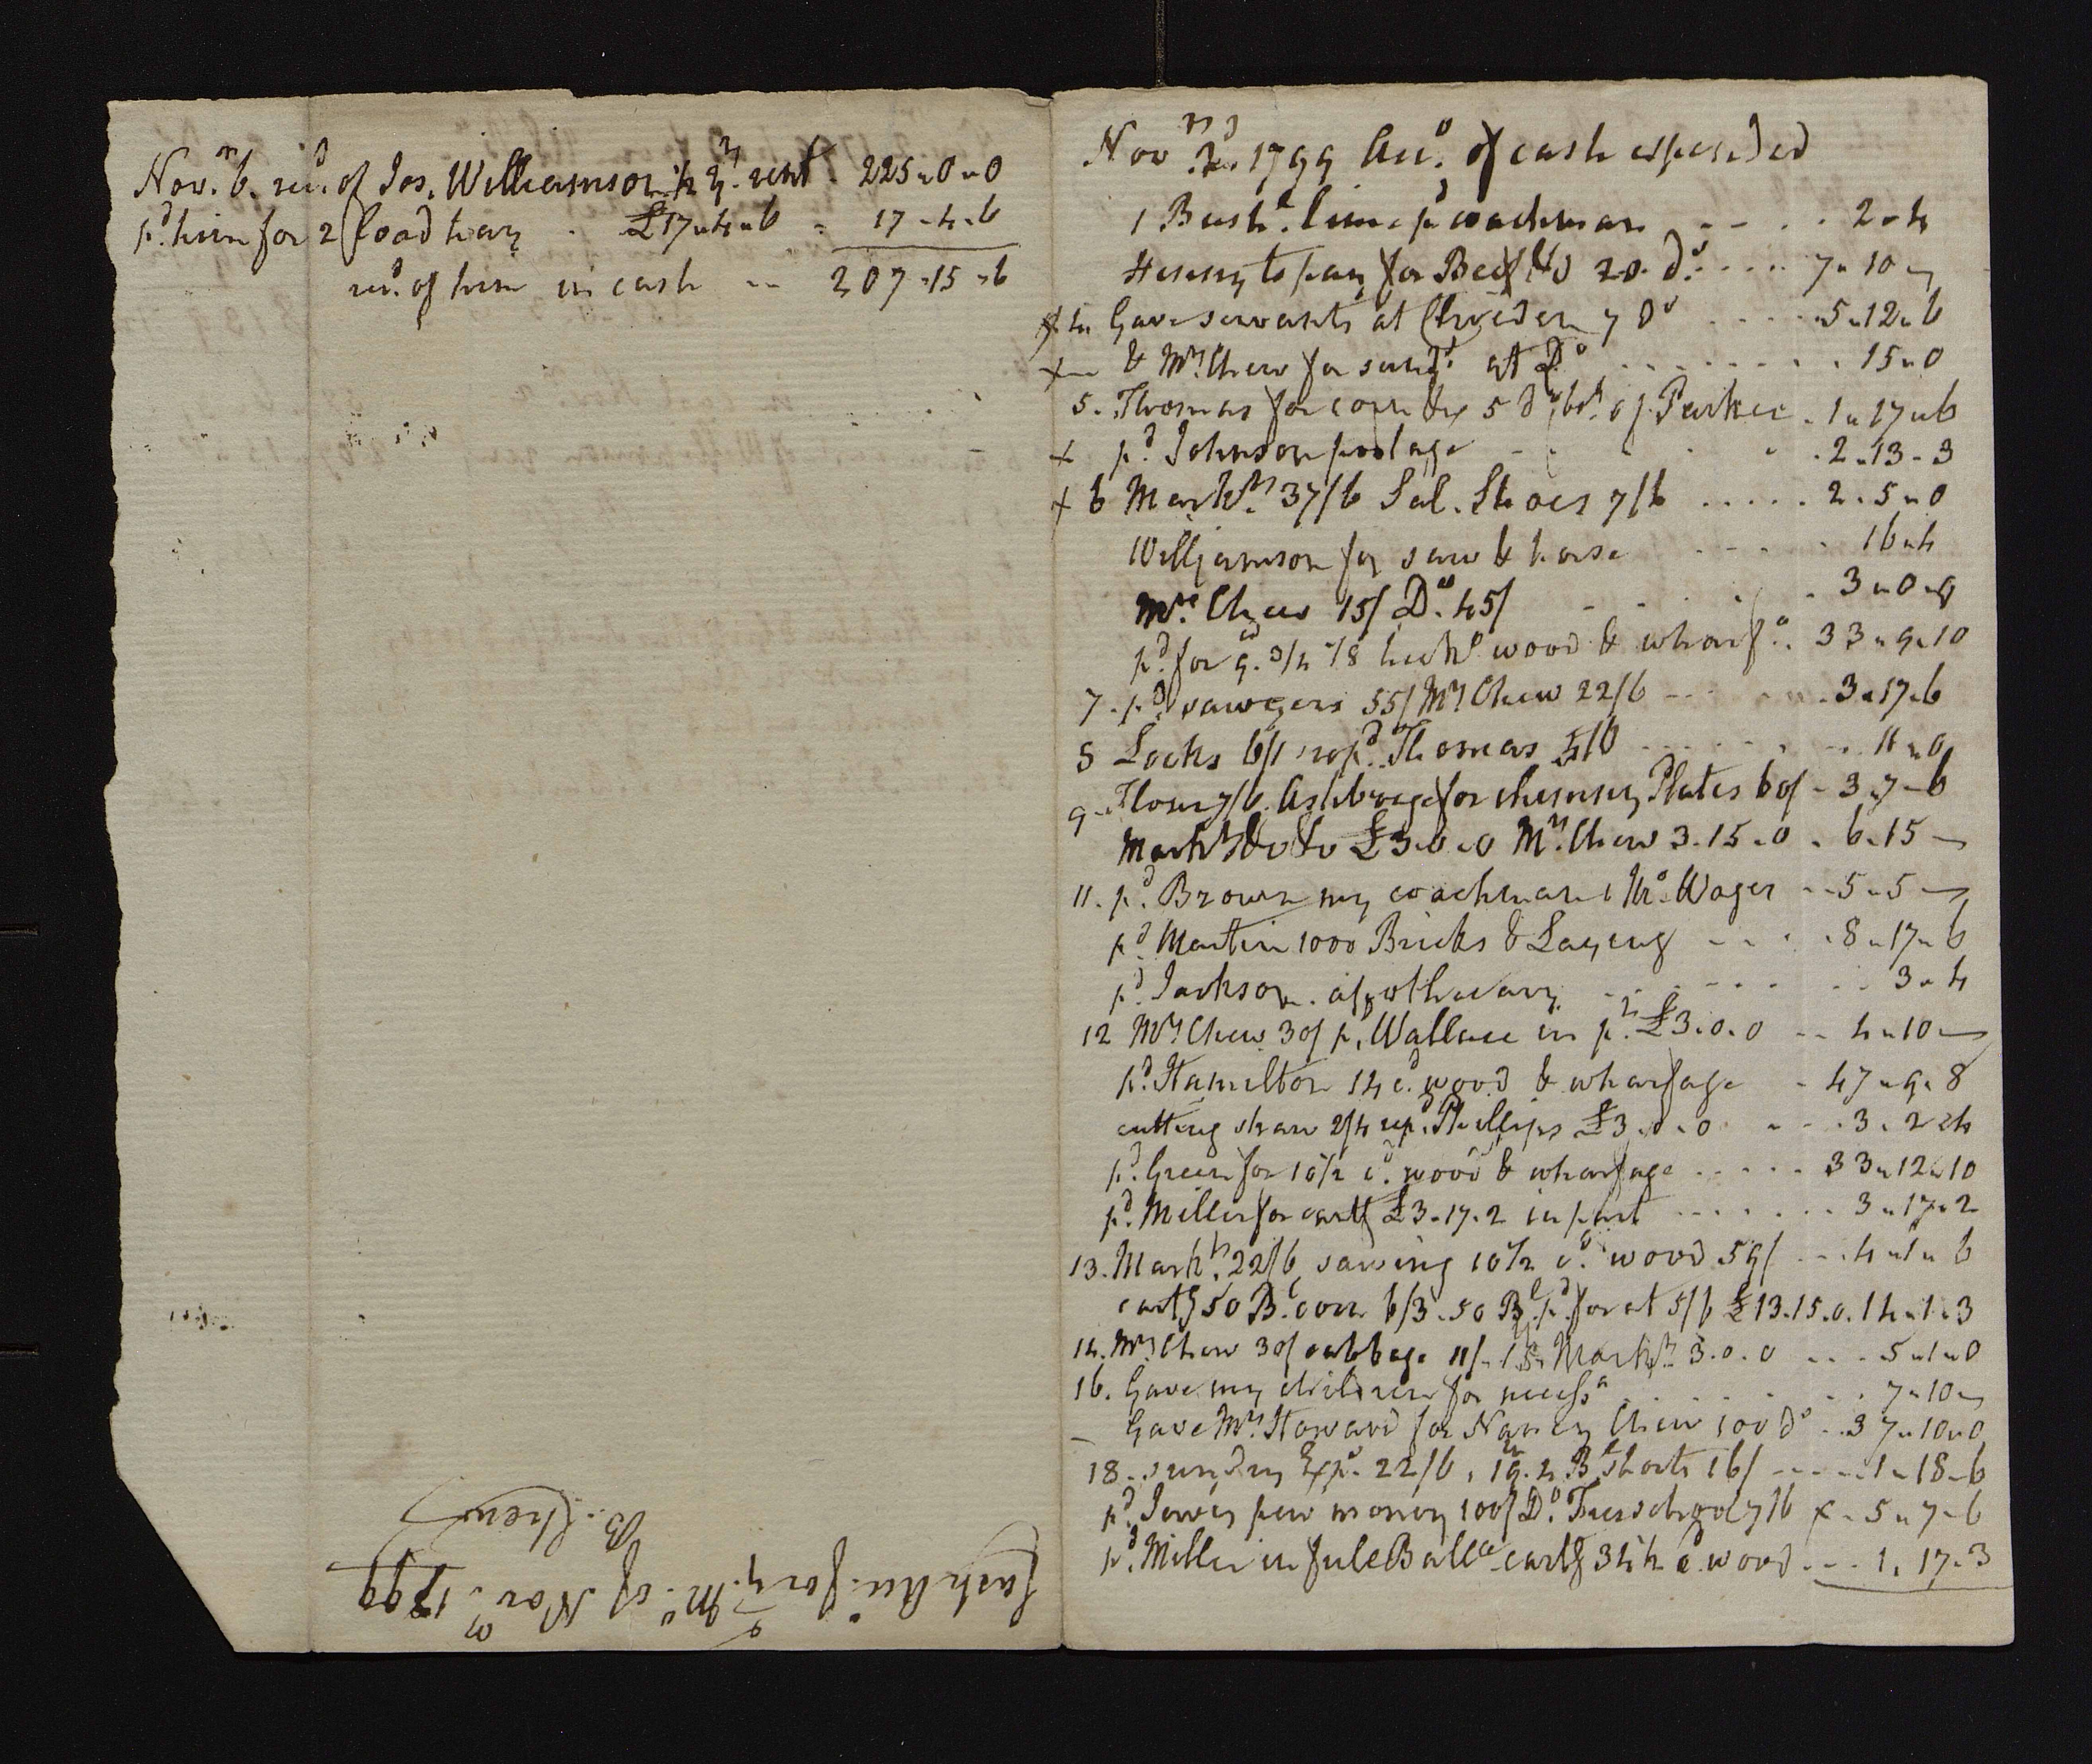 Novr. 6. recd. of Jos. Williamson ½ yrs. rent - 225 " 0 " 0
pd. him for 2 load hay - £17 " 4 " 6 = 17 - 4 - 6
recd. of him in cash -- 207 - 15 - 6
Cash Acct. for ye. Mo. of Novr. 1799
B. Chew
Novr. 2d. 1799 Acct. of cash expended
1 Bushl. lime pd. coachman - - - - 2 - 4
Henny to pay for Beef &c 20 Ds. - - - - 7 " 10 "
x 4 Gave servants at Cliveden 7 Ds - - - - 5 " 12 " 6
x - & Mrs. Chew for sunds. at Do - - - - 15 " 0
5. Thomas for corn &c 5 Ds bot. of Parker - 1 " 17 " 6
x pd. Johnson postage - - - - 2 - 13 - 3
x 6 Markts. 37/6 Sal. Shoes 7/6 - - - - 2 - 5 " 0
Williamson for saw & horse - - - - 16 " 4
Mrs. Chew 15/ Do. 45/ - - - - 3 " 0 " 0
pd. for 9. 3/4 1/8 wood & wharfa. 33 " 9 " 10
7 - pd. sawyers 55/ Mrs Chew 22/6 - - - 3 " 17 " 6
8 Locks 6/ repd. Thomas 5/0 - - - - 11 " 0
9 - Flour 7/6. Ashbridge for chimney Plates 60/ - 3 " 7 - 6
Markts &c &c £3 - 0 - 0 Mrs. Chew 3 - 15 - 0 - 6 - 15 -
11. pd. Brown my coachman 1 Mo. Wages - - 5 " 5 -
pd. Martin 1000 Bricks & Laying - - - - 8 " 17 " 6
pd. Jackson apothecary - - - - 3 " 4
12 Mrs Chew 30/ pd. Wallace in pt. £3 - 0 - 0 - - 4 " 10 -
pd. Hamilton 14 cd. wood & wharfage - 47 " 9 " 8
cutting straw 2/4 repd. Phillips £3 - 0 - 0 - - - 3 - 2 " 4
pd. Green for 10½ cd. wood & wharfage - - - - 33 " 12 " 10
pd. Miller for cartg £3 - 17 - 2 in part - - - - 3 " 17 " 2
13. Markts. 22/6 sawing 10½ cd. wood 59/ - - 4 " 1 " 6
cartg 50 Bl. corn 6/3 - 50 Bl. pd. for at 5/6 £13.15.0. 14 " 1 " 3
14. Mrs Chew 30/ cabbage 11/ - 15 Markts. 3 . 0 . 0 - - - 5 " 1 " 0
16. Gave my children for necessa. - - - - 7 " 10 "
- Gave Mrs. Howard for Nancy Chew 100 Ds - 37 " 10 " 0
18 - sundry Exps. 22/6, 19. 4 Bl shorts 16/ - - - - 1 - 18 - 6
pd. Jervis pew money 100/ Do. Free school 7/6 x - 5 " 7 - 6
pd. Miller in full Balla. cartg 34½ cd. wood - - - 1 . 17 - 3